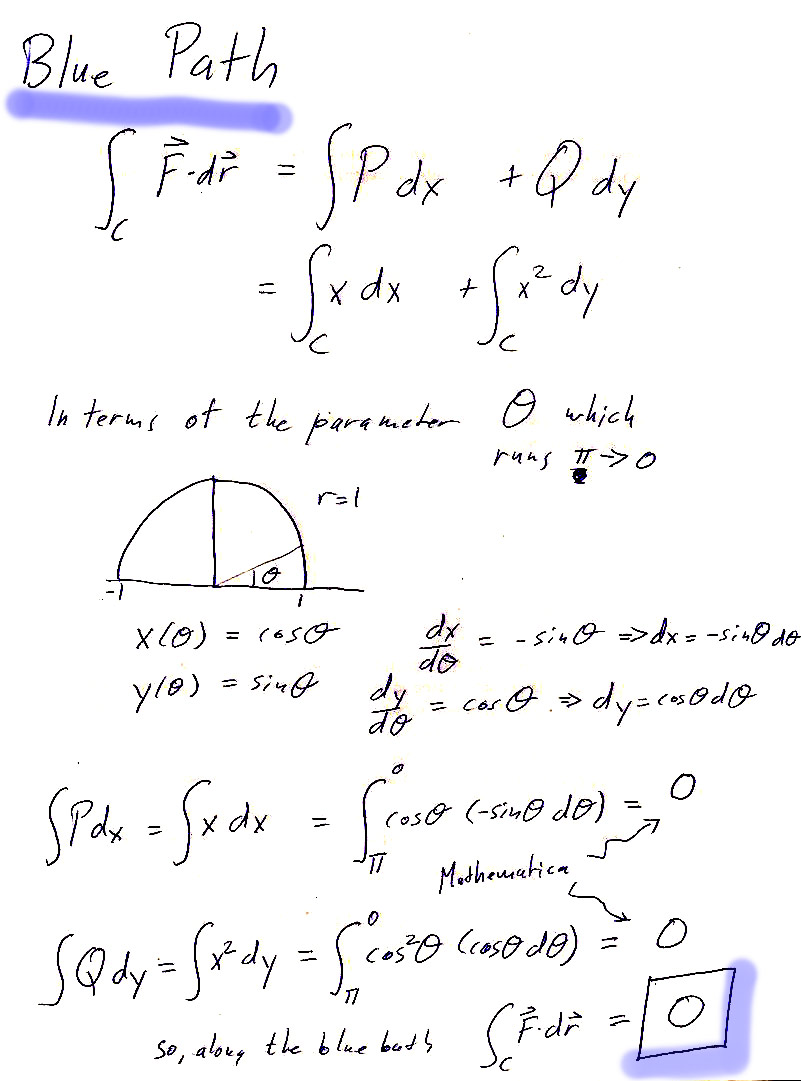 Blue Path
∫_C F⃗·dr⃗ = ∫P dx + Q dy
= ∫_C x dx + ∫_C x² dy
In terms of the parameter θ which
runs π → 0
r=1
θ
-1 1
x(θ) = cosθ dx/dθ = -sinθ ⇒ dx = -sinθ dθ
y(θ) = sinθ dy/dθ = cosθ ⇒ dy = cosθ dθ
∫P dx = ∫x dx = ∫_π^0 cosθ (-sinθ dθ) = 0
Mathematica
∫Q dy = ∫x² dy = ∫_π^0 cos²θ (cosθ dθ) = 0
so, along the blue bath ∫_C F⃗·dr⃗ = 0